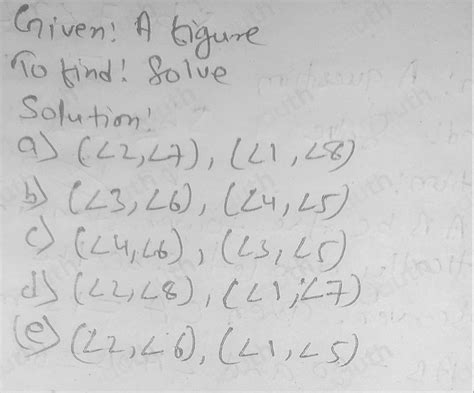 Given: A figure
To find: Solve
Solution:
a) (∠2,∠7), (∠1,∠8)
b) (∠3,∠6), (∠4,∠5)
c) (∠4,∠6), (∠3,∠5)
d) (∠2,∠8), (∠1,∠7)
(e) (∠2,∠6), (∠1,∠5)